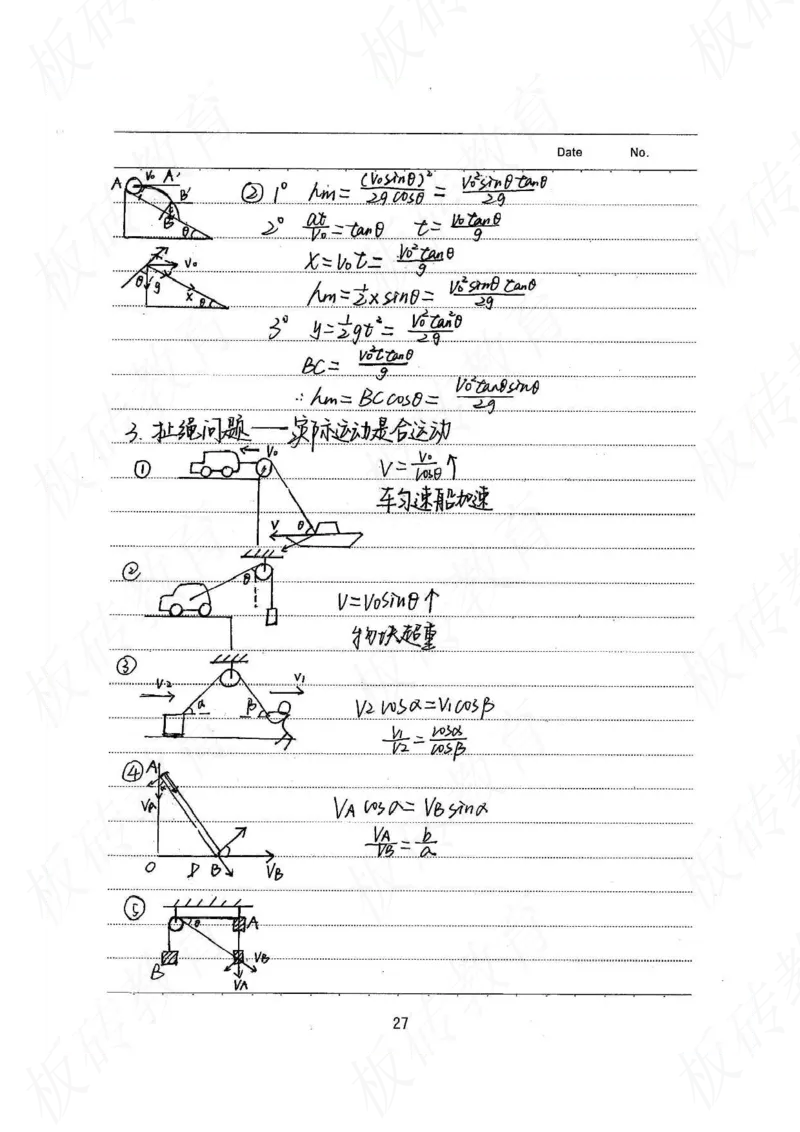 Date No.
A V₀ A' B' B θ
② 1° hm = (V₀sinθ)²/2gcosθ = V₀²sinθtanθ/2g
2° at/V₀ = tanθ t = V₀tanθ/g
V₀ θ g x θ
x = V₀t = V₀²tanθ/g
hm = 1/2 x sinθ = V₀²sinθtanθ/2g
3° y = 1/2 gt² = V₀²tan²θ/2g
BC =
∴ hm = BCcosθ = V₀²tanθsinθ/2g
3. 扯绳问题——实际运动是合运动
① V₀ V θ
V = V₀/cosθ ↑
车匀速船加速
② θ
V = V₀sinθ ↑
物块超重
③ V₂ V₁ α β
V₂cosα = V₁cosβ
V₁/V₂ = cosα/cosβ
④ A α VA O D B VB
VA cosα = VB sinα
VA/VB = b/a
⑤ θ A B VB VA
27
板砖教育
板砖教育
板砖教育